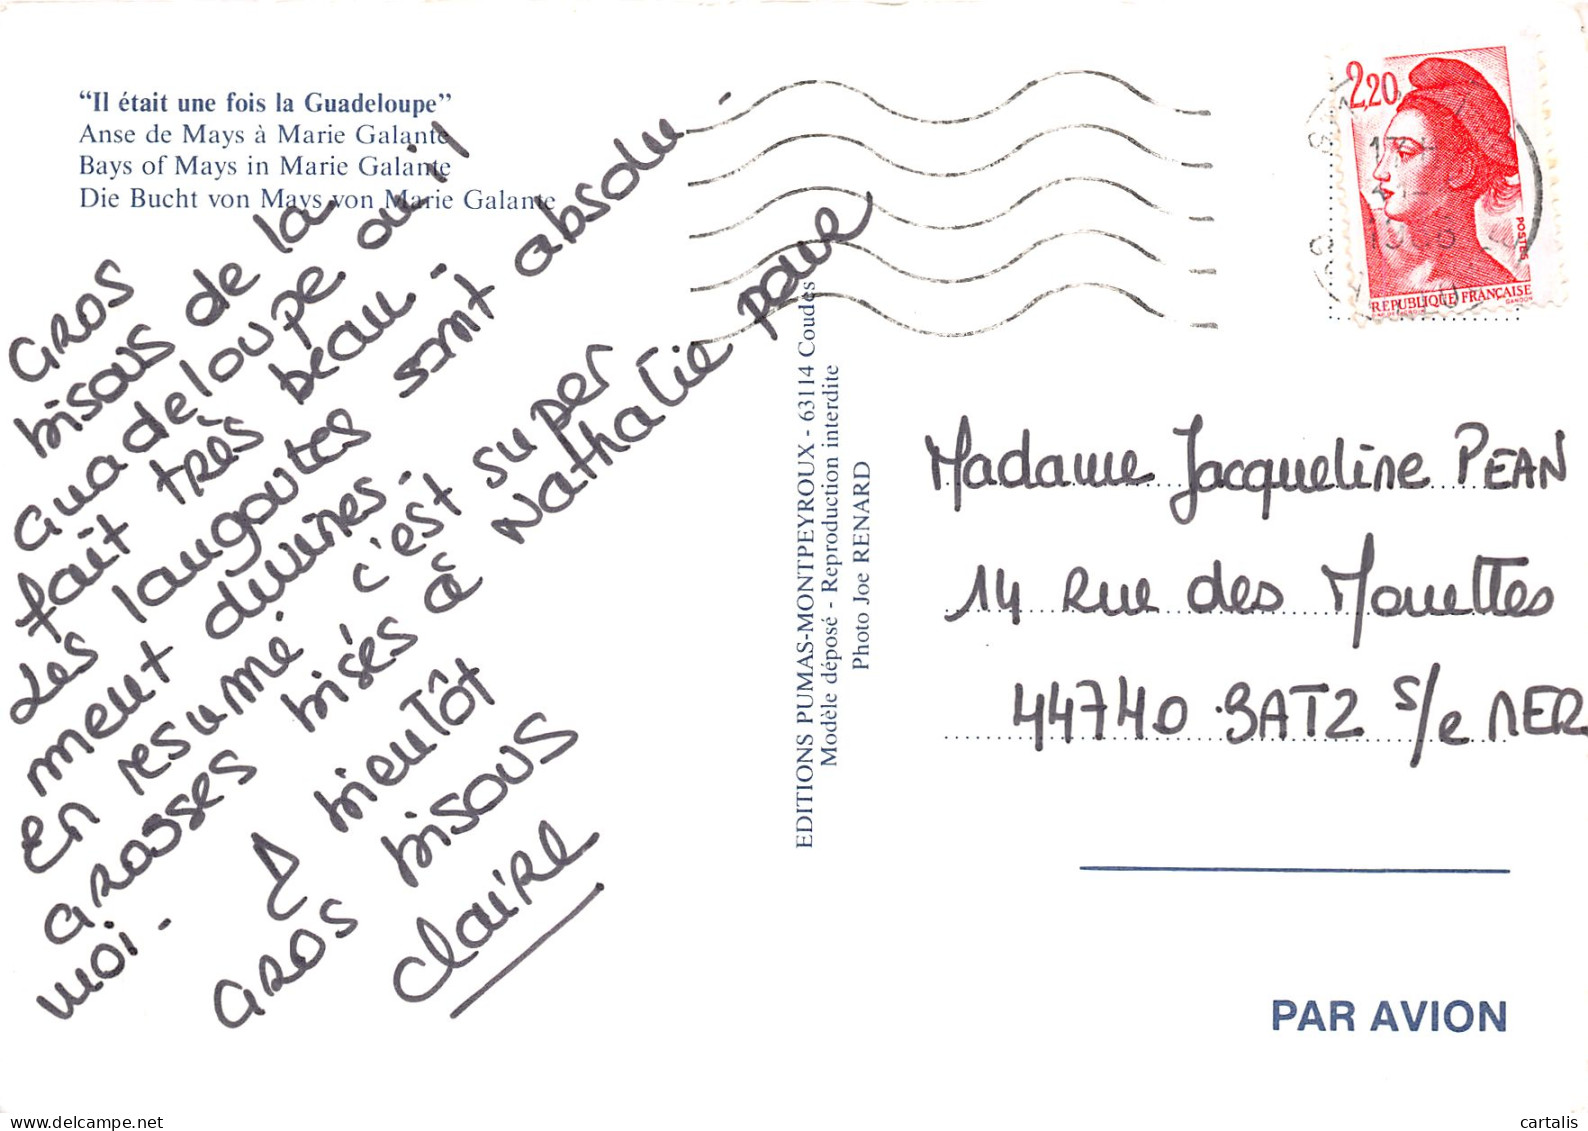 “Il était une fois la Guadeloupe”
Anse de Mays à Marie Galante
Bays of Mays in Marie Galante
Die Bucht von Mays von Marie Galante
GROS
bisous de la
Guadeloupe où il
fait très beau.
Les langoustes sont absolu-
ment divines.
En resumé c'est super
GROSSES bises à Nathalie pour
moi-
A bientôt
GROS bisous
Claire
EDITIONS PUMAS-MONTPEYROUX - 63114 Coudes
Modèle déposé - Reproduction interdite
Photo Joe RENARD
2,20
POSTES
REPUBLIQUE FRANÇAISE
GANDON
Madame Jacqueline PEAN
14 Rue des Mouettes
44740 BATZ s/e MER
PAR AVION
cartalis